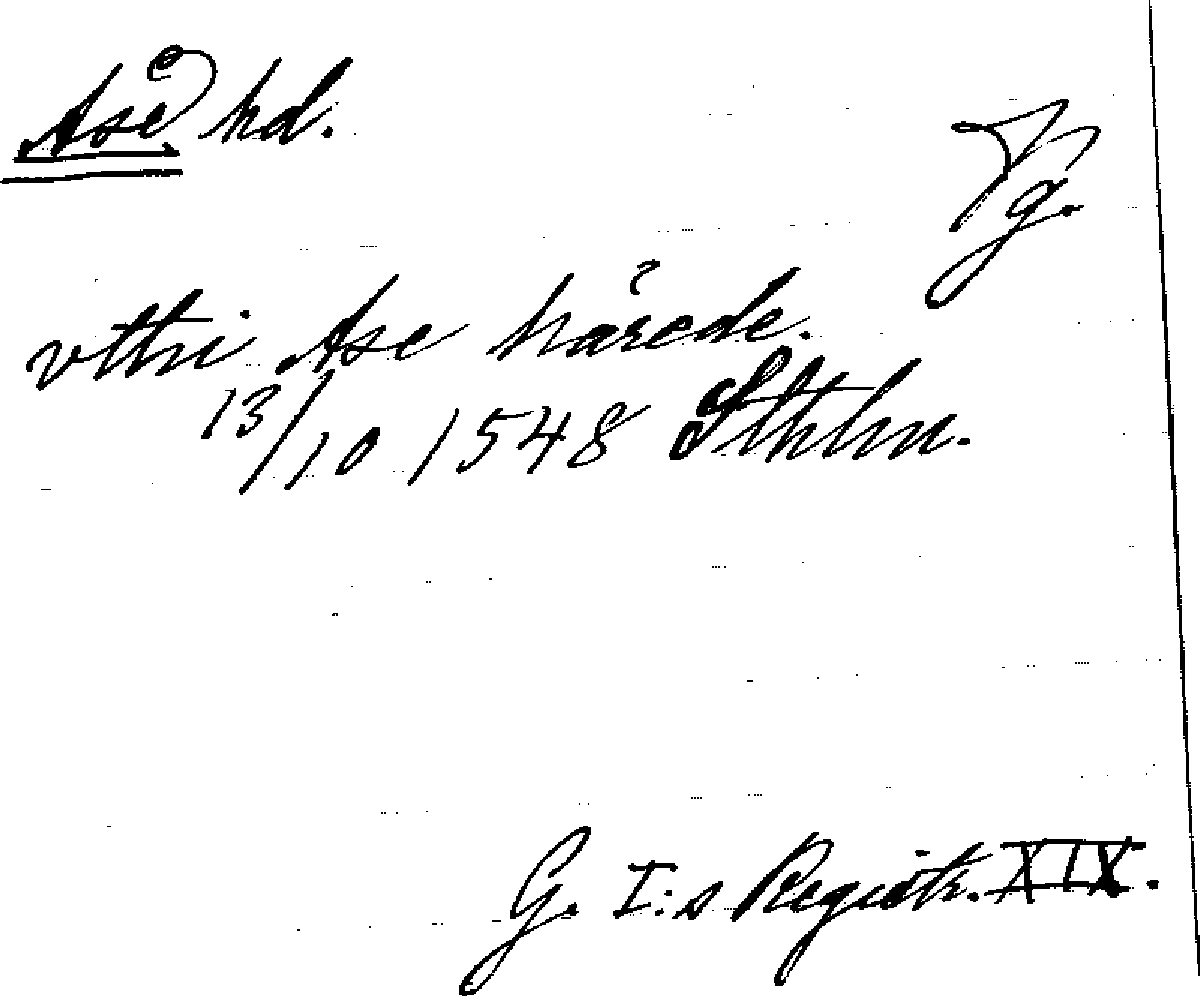 Åse hd.
Vg.
vthi Ase hårede.
13/10 1548 Sthlm.
G. I:s Registr. XIX.